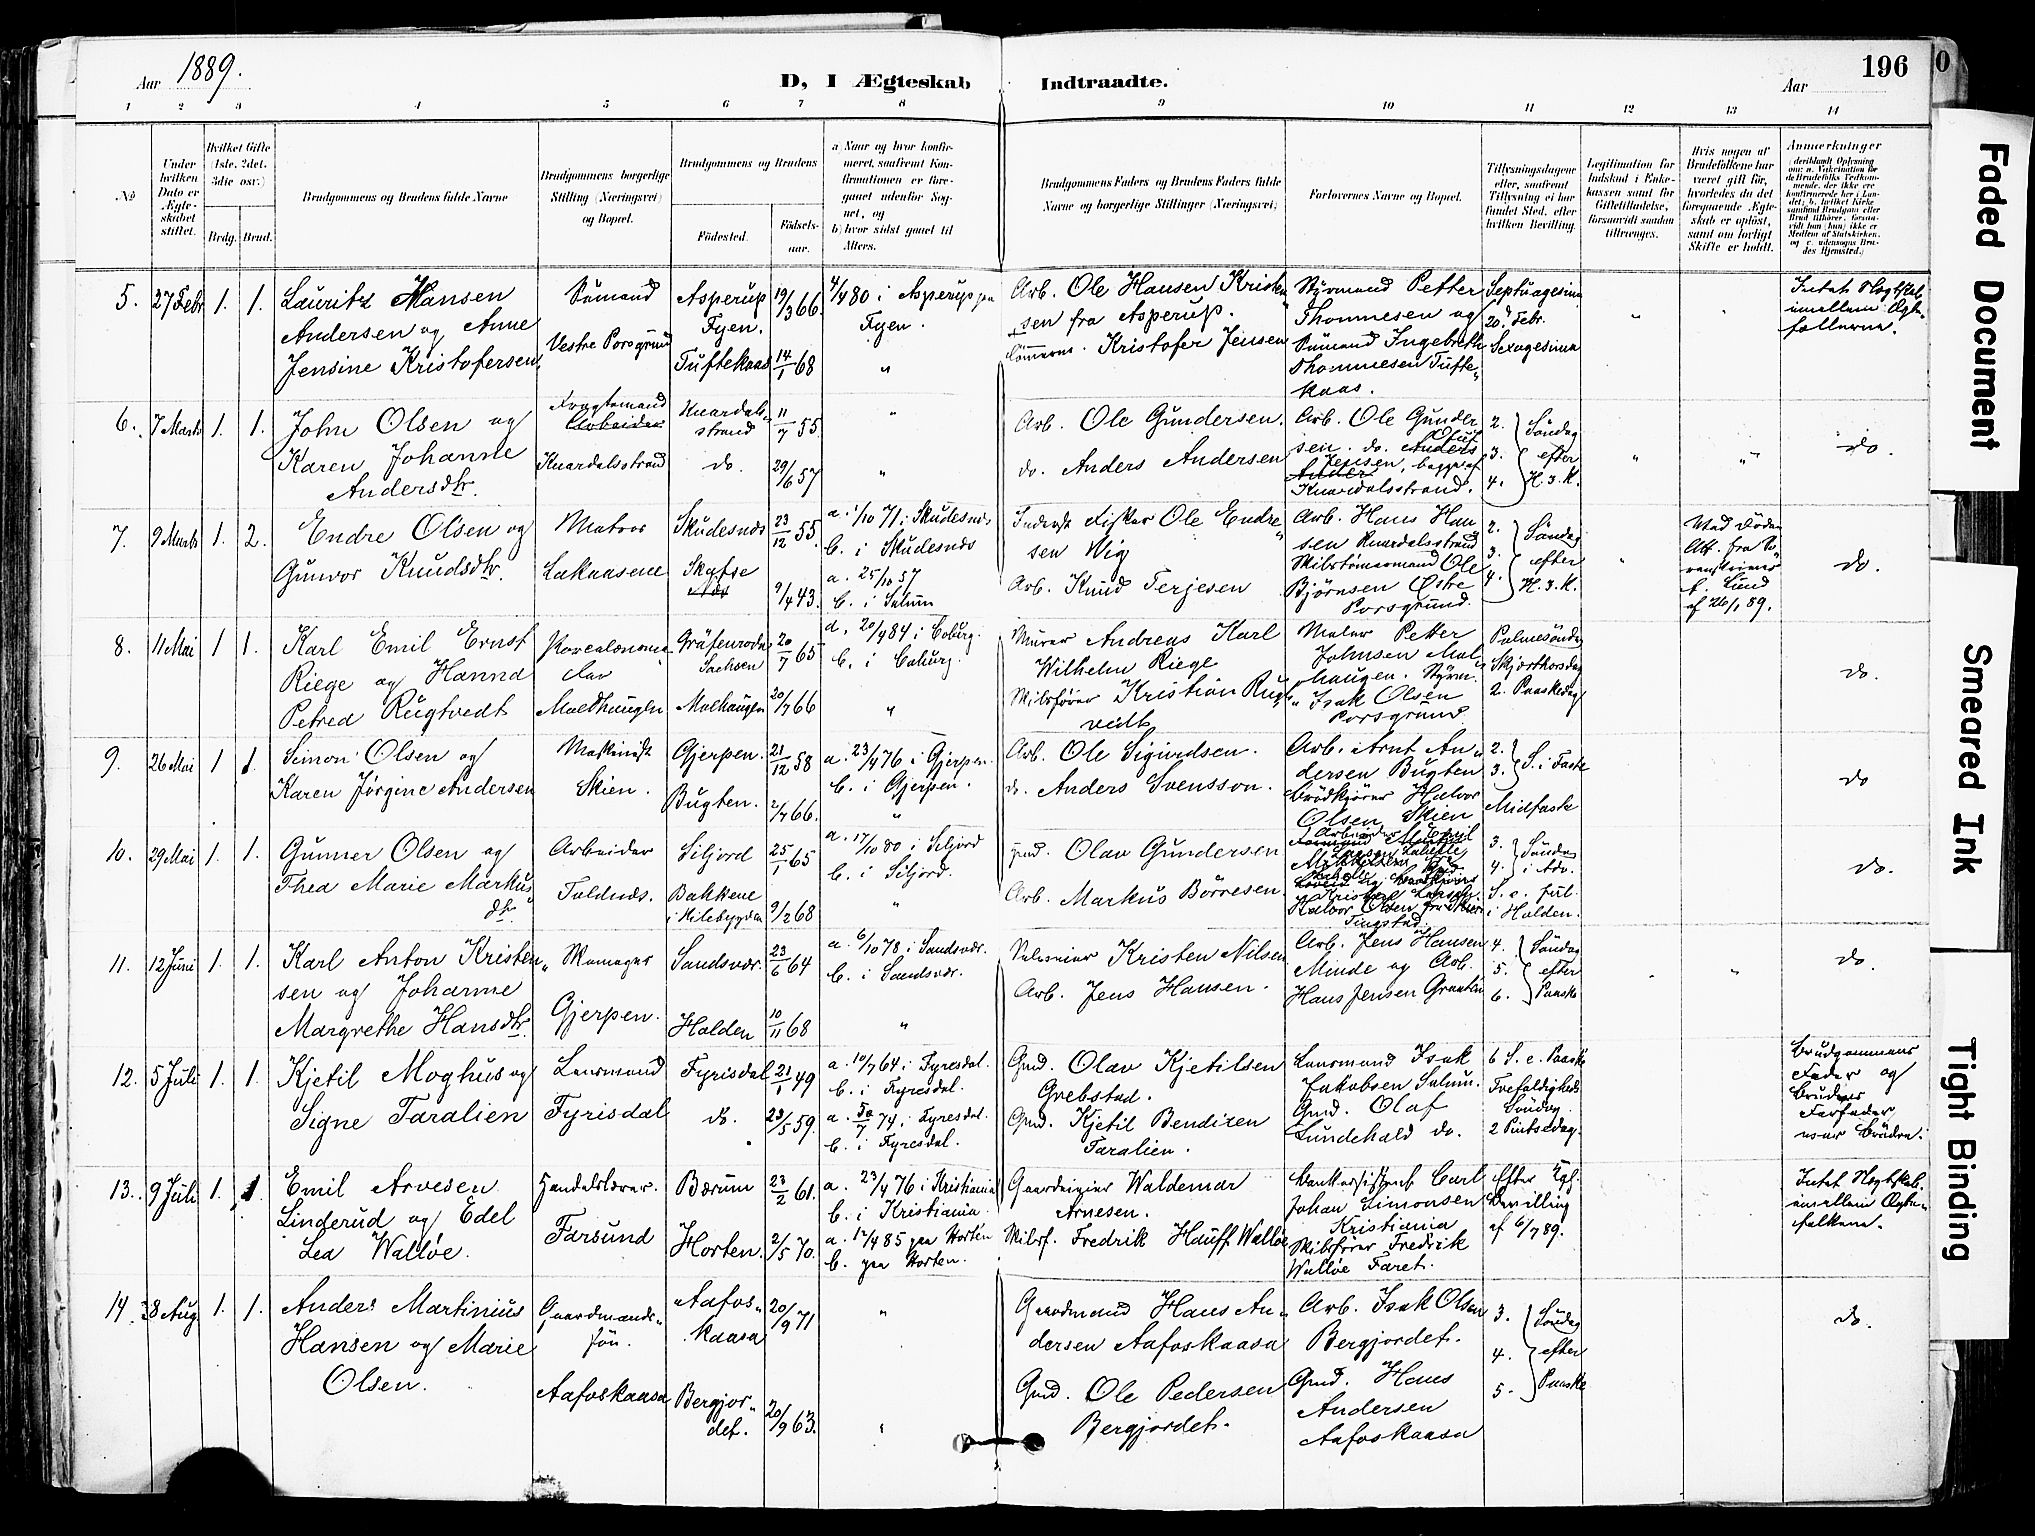 Aar 1889.
D, I Ægteskab Indtraadte.
Aar
196
0
1 2 3 4 5 6 7 8 9 10 11 12 13 14
No
Under hvilken Dato er Ægteskabet stiftet.
Hvilket Gifte (1ste, 2det, 3die osv.)
Brdg. Brud.
Brudgommens og Brudens fulde Navne
Brudgommens borgerlige Stilling (Næringsvei) og Bopæl.
Brudgommens og Brudens
Fødested.
Fødselsaar.
a) Naar og hvor konfirmeret, saafremt Konfirmationen er foregaaet udenfor Sognet, og
b) hvor sidst gaaet til Alters.
Brudgommens Faders og Brudens Faders fulde Navne og borgerlige Stillinger (Næringsvei)
Forlovernes Navne og Bopæl.
Tillysningsdagene eller, saafremt Tillysning ei har fundet Sted, efter hvilken Bevilling.
Legitimation for Indskud i Enkekassen samt for Giftetilladelse, forsaavidt saadan tiltrænges.
Hvis nogen af Brudefolkene har været gift før, hvorledes da det foregaaende Ægteskab er opløst, samt om lovligt Skifte er holdt.
Anmerkninger
5. 27 Febr 1. 1.
Lauritz Hansen
Andersen og Anne
Jensine Kristofersen.
Sømand
Vestre Porsgrund
Asperup
Fyen.
Tuftekaas
19/3 66.
14/1 68
4/4 80 i Asperup paa
Fyen.
Arb. Ole Hansen Kristen
sen fra Asperup.
Tømmerm. Kristofer Jensen
Styrmand Petter
Thommesen og
Sømand Ingebreth
Thommesen Tufte
kaas.
Septuagesima
20de Febr.
Sexagesima
Intet Slægtskab
imellem Ægte
fællerne.
6. 7 Marts 1. 1.
John Olsen og
Karen Johanne
Andersdtr.
Fragtemand
Arbeider
Knardalsstrand
Knardals
strand
do.
11/7 55
29/6 57
Arb. Ole Gundersen.
do. Anders Andersen
Arb. Ole Gunder
sen. do. Anders
Jensen, begge af
Knardalsstrand.
2.
3.
4.
Søndag
efter
H. 3. K.
do.
7. 9 Marts 1. 2.
Endre Olsen og
Gunvor Knudsdtr.
Matros
Lakaasene
Skudesnæs
23/12 55.
9/4 43.
a. 1/10 71 i Skudesnæs
b. i Skudesnæs
a. 25/10 57
b. i Solum
Fisker Ole Endre
sen Wig
Arb. Knud Terjesen
Arb. Hans Han
sen Knardalsstrand
Skibstømmermand Ole
Bjørnsen Østre
Porsgrund.
2.
3.
4.
Søndag
efter
H. 3. K.
Ved Døden
Att. fra
Lund
af 26/1 89.
do.
8. 11 Mai 1 1.
Karl Emil Ernst
Riege og Hanna
Petrea Rugtvedt
Porcelænsma
ler
Moldhaugen
Gräfenroda
Sachsen
Molhaugen
20/7 65
20/7 66
a. 20/4 84 i Coburg.
b. i Coburg.
Murer Andreas Karl
Wilhelm Riege
Skibsfører Kristian Rugt
vedt
Maler Petter
Johnsen Mol
haugen. Styrm.
Isak Olsen
Porsgrund.
Palmesøndag
Skjærthorsdag
2. Paaskedag
do.
9. 26 Mai 1 1.
Simon Olsen og
Karen Jørgine Andersen
Maskinist
Skien.
Gjerpen.
Bugten.
21/12 58
2/7 66.
a. 23/4 76 i Gjerpen
b. i Gjerpen.
Arb. Ole Sigurdsen.
do. Anders Svensson.
Arb. Arnt An
dersen Bugten
Brødkjører Halvor
Olsen Skien
2.
3.
S. i Faste
Midfaste
do
10. 29 Mai 1. 1.
Gunner Olsen og
Thea Marie Markus
dtr.
Arbeider
Toldnæs.
Siljord
Bakkene
i Hilebygden
25/1 65
9/2 68
a. 17/10 80 i Siljord
b. i Siljord.
Gmd. Olav Gundersen
Arb. Markus Børresen.
Arbeider Emil
Halvor Olsen
Tingstad.
3.
4.
Søndag
i Adv.
i Holden.
do.
11. 12 Juni 1. 1.
Karl Anton Kristen
sen og Johanne
Margrethe Hansdtr.
Skomager
Gjerpen.
Sandsvær.
Holden
23/6 64
10/11 68
a. 6/10 78 i Sandsvær.
b. i Sandsvær.
Selveier Kristen Nilsen
Arb. Jens Hansen.
Arb. Jens Hansen
Minde og Arb.
Hans Jensen Graaten
4.
5.
6.
Søndag
efter
Paaske
do.
12. 5 Juli 1. 1.
Kjetil Moghus og
Signe Taralien
Lensmand
Fyrisdal
Fyrisdal
do.
21/1 49
23/5 59.
a. 10/7 64 i Fyresdal.
b. i Fyresdal.
a. 50/7 74 i Fyresdal.
b. i Fyresdal.
Gmd. Olav Kjetilsen
Grebstad.
Gmd. Kjetil Bendixen
Taralien.
Lensmand Isak
Jakobsen Solum.
Gmd. Olaf
Lundekald do.
6 S. e. Paaske
Trefoldigheds
Søndag.
2 Pintsedag.
Brudgommens
Fader og
Brudens
Farfader
var Brødre.
13. 9 Juli 1. 1.
Emil Arvesen
Linderud og Edel
Lea Walløe.
Handelslærer.
Farsund
Bærum
Horten.
23/2 61.
2/5 70.
a. 23/4 76 i Kristiania
b. i Kristiania.
a. 12/4 85 paa Horten
b. paa Horten.
Gaardeier Waldemar
Arnesen.
Skibsf. Fredrik Hauff Walløe
Bankassistent Carl
Johan Simonsen
Kristiania
Skibsfører Fredrik
Walløe Faret.
Efter Kgl.
Bevilling
af 6/7 89.
Intet Slægtskab
imellem Ægte
folkene.
14. 8 Aug 1. 1.
Anders Martinius
Hansen og Marie
Olsen.
Gaardmands
søn.
Aafoskaasa
Aafos
kaasa
Bergjor
det.
20/9 71
20/9 63.
Gaardmand Hans An
dersen Aafoskaasa
Gmd. Ole Pedersen
Bergjordet.
Arb. Isak Olsen
Bergjordet.
Gmd. Hans
Andersen
Aafoskaasa
3.
4.
5.
Søndag
efter
Paaske
do.
Faded Document
Smeared Ink
Tight Binding